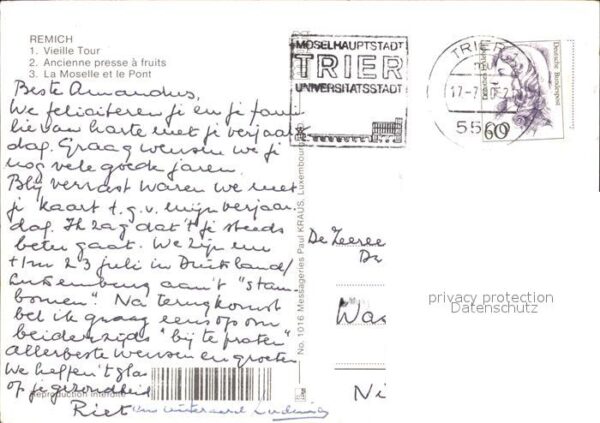 REMICH
1. Vieille Tour
2. Ancienne presse à fruits
3. La Moselle et le Pont
MOSELHAUPTSTADT
TRIER
UNIVERSITÄTSSTADT
TRIER
55
Deutsche Bundespost
60
Beste Amandus,
We feliciteren je en je fami
lie van harte met je verjaar
dag. Graag wensen we je
nog vele goede jaren.
Blij verrast waren we met
je kaart t.g.v. mijn verjaar
dag. Ik zag dat 't je steeds
beter gaat. We zijn
t/m 23 juli in Duitsland/
Luxemburg aan 't "stam
bomen". Na terugkomst
bel ik graag eens op om
beiderzijds "bij te praten"
allerbeste wensen en groeten
We heffen 't glas
op je gezondheid
Riet
Reproduction interdite
No. 1016 Messageries Paul KRAUS, Luxembourg
De Zeeree
Wa
Ni
privacy protection
Datenschutz